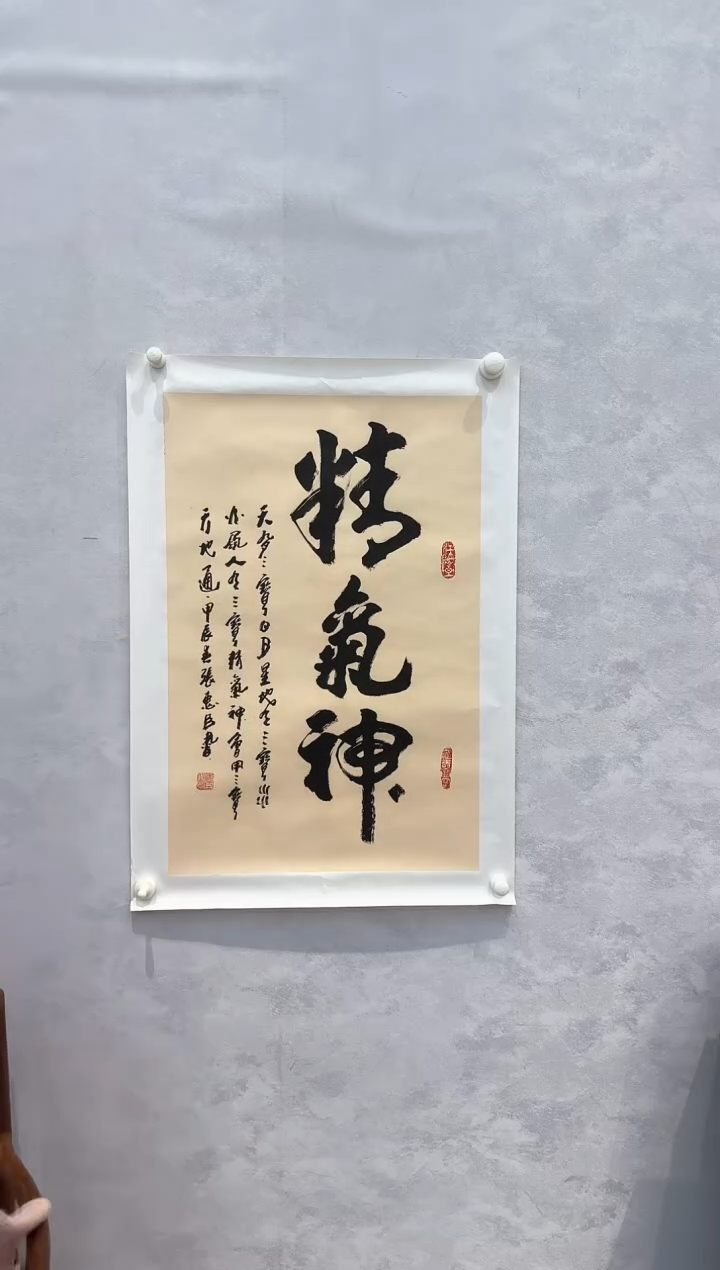 精氣神
天有三寶日月星地有三寶水
火風人有三寶精氣神會用三寶
天地通甲辰春張惠臣書